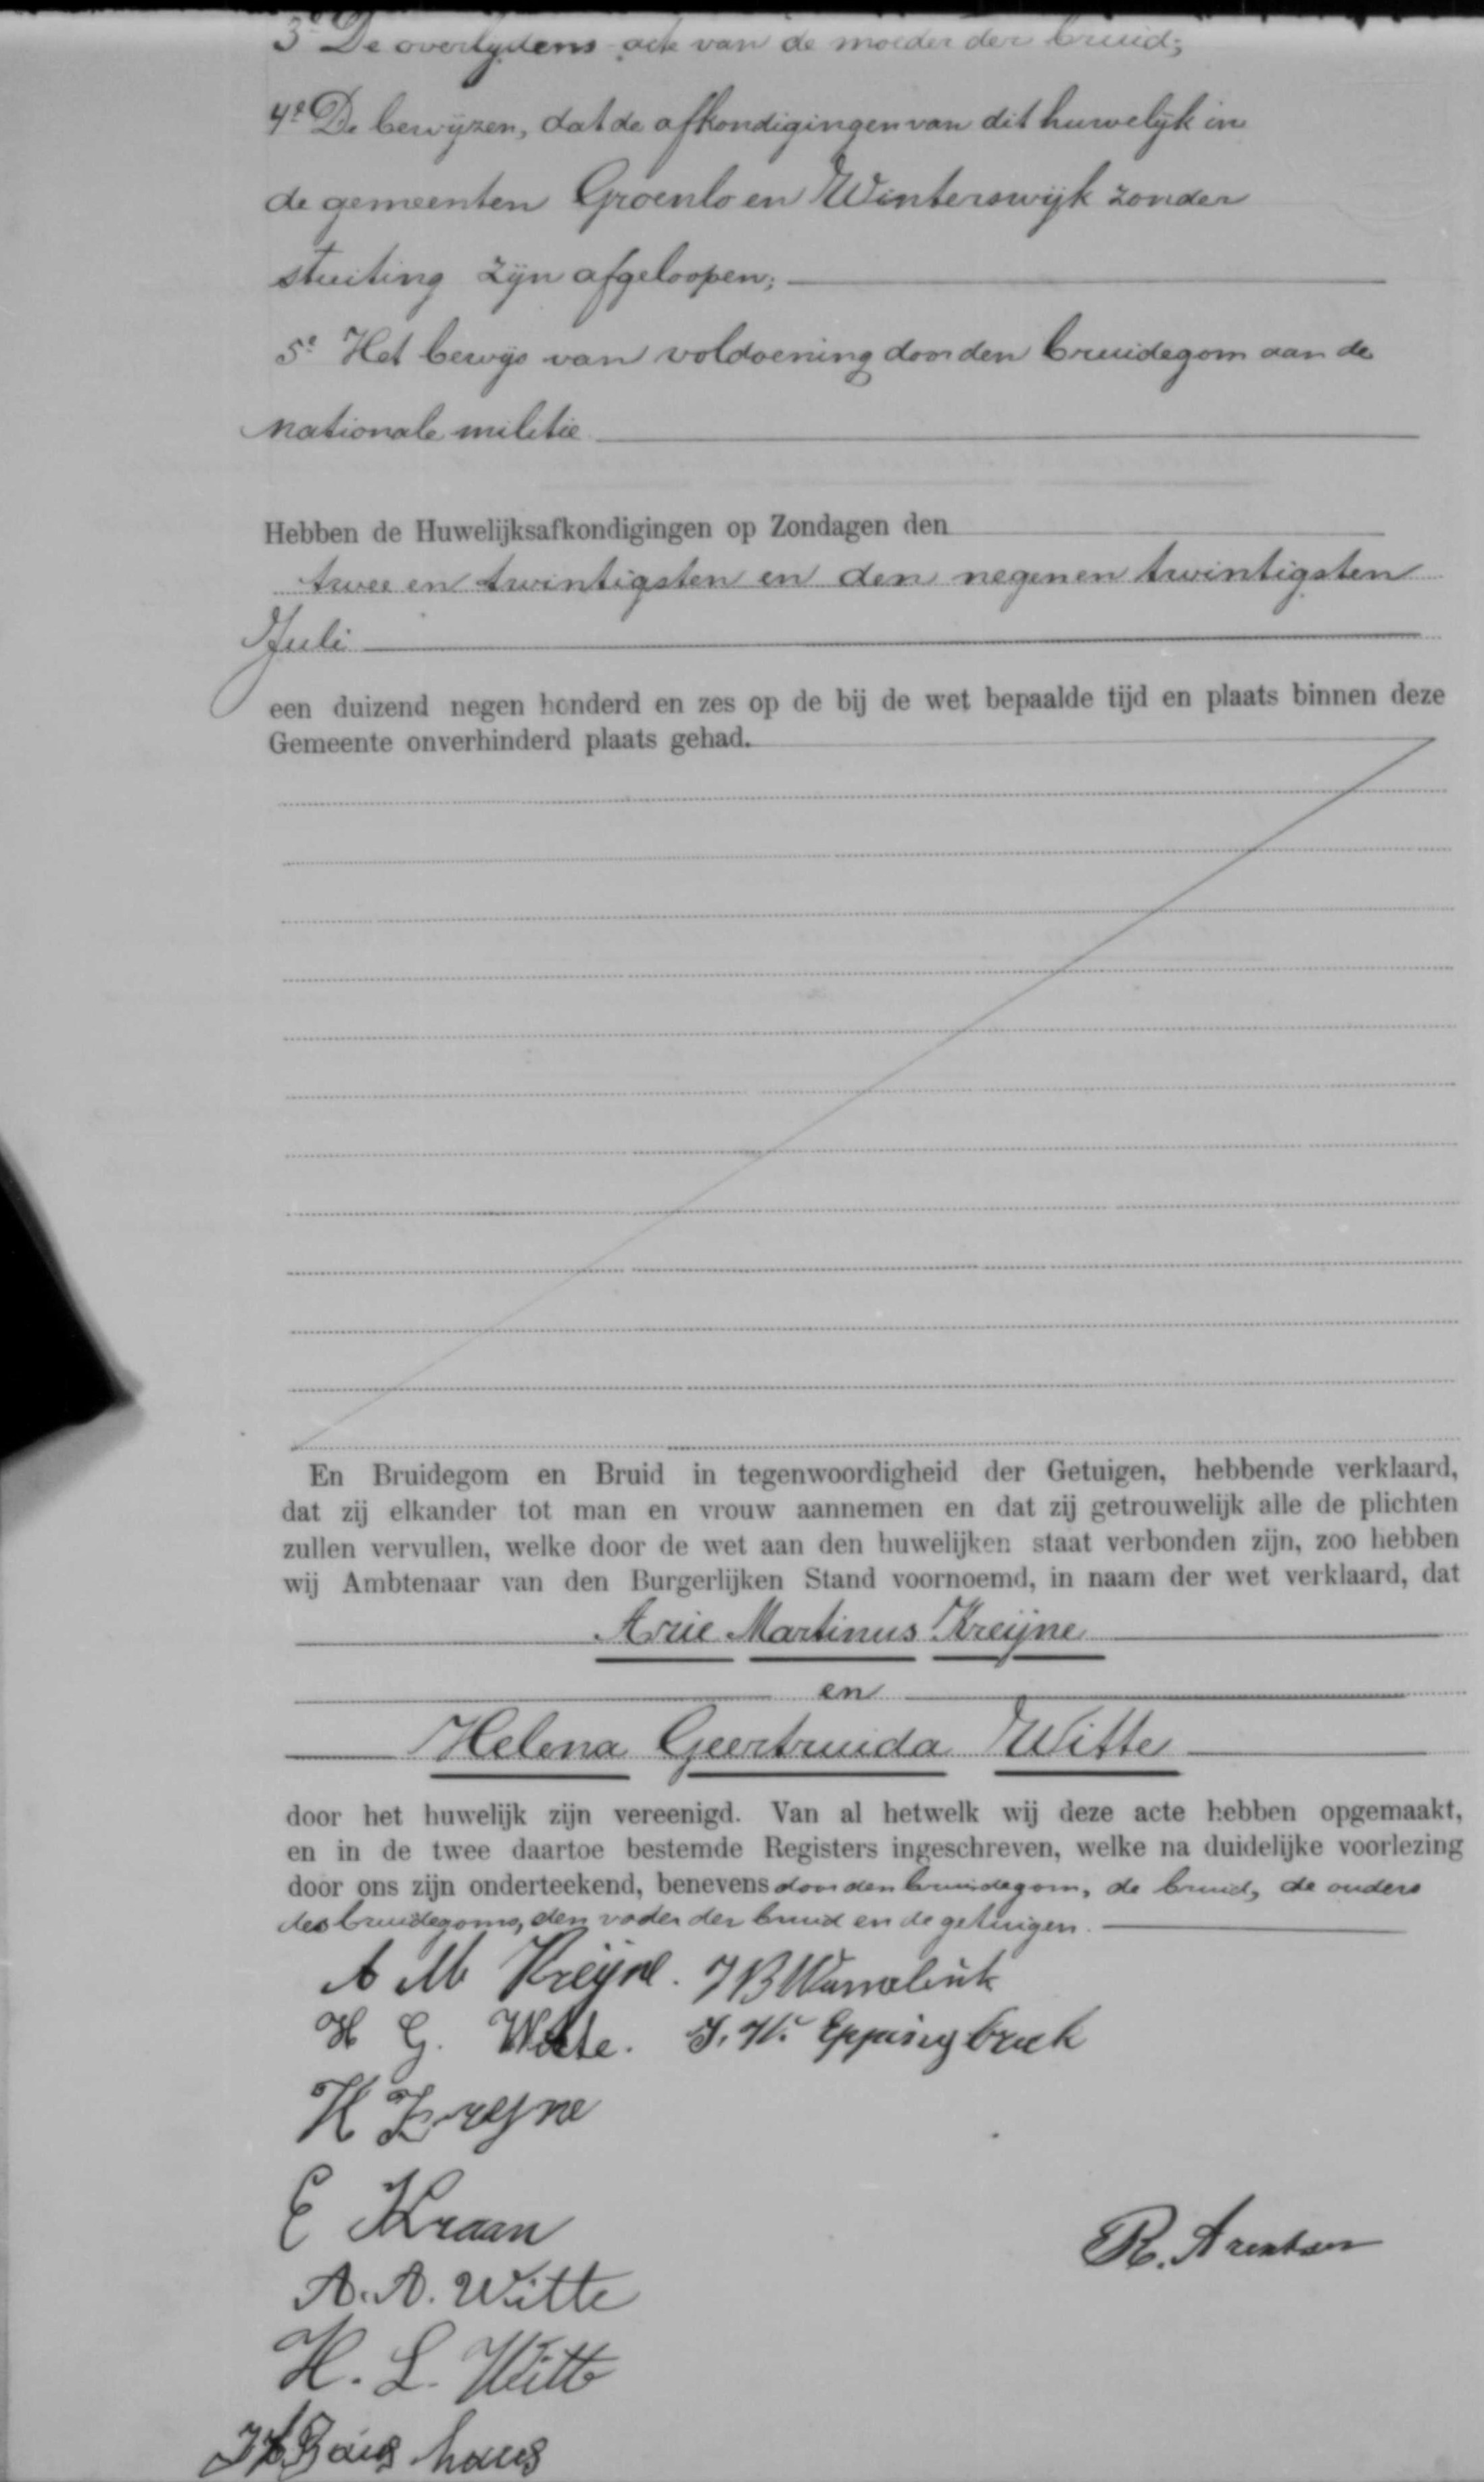 3e De overlijdens-acte van de moeder der bruid;
4e De bewijzen, dat de afkondigingen van dit huwelijk in
de gemeenten Groenlo en Winterswijk zonder
stuiting zijn afgeloopen;
5e Het bewijs van voldoening door den bruidegom aan de
nationale militie
Hebben de Huwelijksafkondigingen op Zondagen den
twee en twintigsten en den negen en twintigsten
Juli
een duizend negen honderd en zes op de bij de wet bepaalde tijd en plaats binnen deze
Gemeente onverhinderd plaats gehad.
En Bruidegom en Bruid in tegenwoordigheid der Getuigen, hebbende verklaard,
dat zij elkander tot man en vrouw aannemen en dat zij getrouwelijk alle de plichten
zullen vervullen, welke door de wet aan den huwelijken staat verbonden zijn, zoo hebben
wij Ambtenaar van den Burgerlijken Stand voornoemd, in naam der wet verklaard, dat
Arie Martinus Kreijne
en
Helena Geertruida Witte
door het huwelijk zijn vereenigd. Van al hetwelk wij deze acte hebben opgemaakt,
en in de twee daartoe bestemde Registers ingeschreven, welke na duidelijke voorlezing
door ons zijn onderteekend, benevens door den bruidegom, de bruid, de ouders
des bruidegoms, den vader der bruid en de getuigen.
A M Kreijne.
H G. Witte. Eppingbroek
K Kreyne
E Kraan
R. Arentsen
A. A. Witte
H. L. Witte